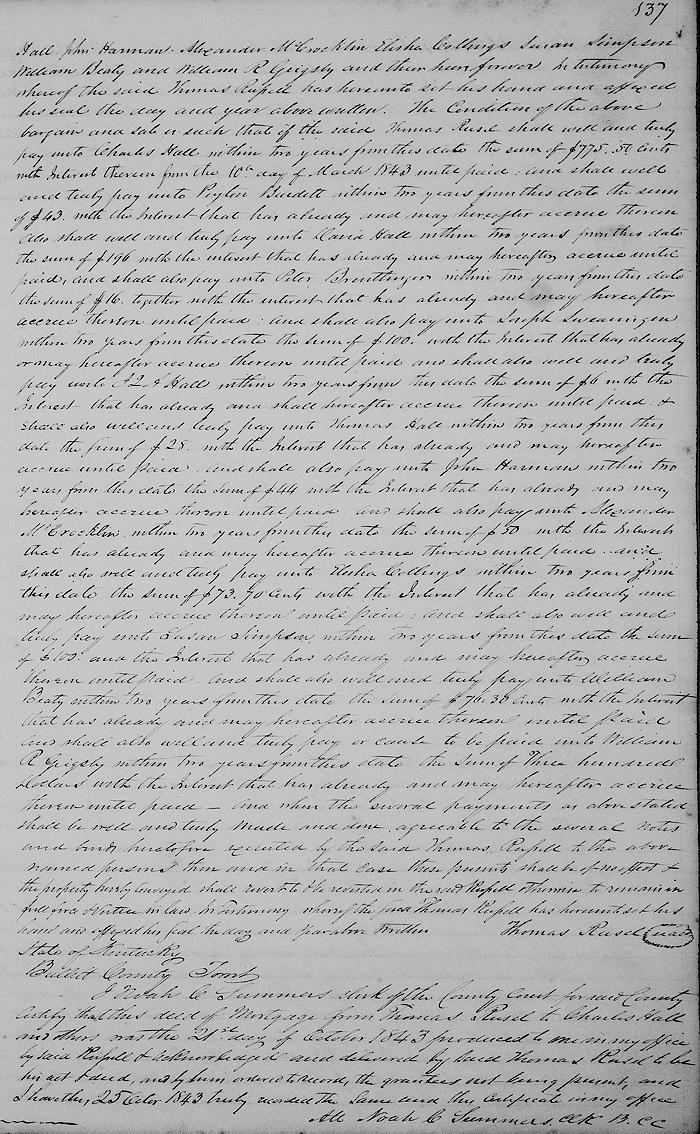 137
Hall John Harman. Alexander McCrocklin Elisha Collings Susan Simpson
William Beaty and William R Grigsby and their heirs forever In testimony
whereof the said Thomas Russell has hereunto set his hand and affixed
his seal the day and year above written. The Condition of the above
bargain and sale is such that if the said Thomas Russel shall well and truly
pay unto Charles Hall within two years from this date the sum of $775.50 Cents
with Interest thereon from the 10th day of March 1843 until paid; and shall well
and truly pay unto Peyton Burdett within two years from this date the sum
of $43. with the Interest that has already and may hereafter accrue thereon
also shall well and truly pay unto David Hall within two years from this date
the sum of $196 with the interest that has already and may hereafter accrue until
paid, and shall also pay unto Peter Brentlinger within two years from this date
the sum of $16. together with the interest that has already and may hereafter
accrue thereon until paid; and shall also pay unto Joseph Swearingen
within two years from this date the sum of $100. with the Interest that has already
or may hereafter accrue thereon until paid and shall also well and truly
pay unto Hall within two years from this date the sum of $6 with the
Interest that has already and shall hereafter accrue thereon until paid &
shall also well and truly pay unto Thomas Hall within two years from this
date the Sum of $28. with the Interest that has already and may hereafter
accrue until paid. And shall also pay unto John Harman within two
years from this date the Sum of $44 with the Interest that has already and may
hereafter accrue thereon until paid and shall also pay unto Alexander
McCrocklin within two years from this date the sum of $50 with the Interest
that has already and may hereafter accrue thereon until paid. and
shall also well and truly pay unto Elisha Collings within two years from
this date the sum of $73.90 Cents with the Interest that has already and
may hereafter accrue thereon until paid; and shall also well and
truly pay unto Susan Simpson within two years from this date the sum
of $100. and the Interest that has already and may hereafter accrue
thereon until paid. and shall also well and truly pay unto William
Beaty within two years from this date the sum of $70.30 Cents with the Interest
that has already and may hereafter accrue thereon until paid
and shall also well and truly pay or cause to be paid unto William
R Grigsby within two years from this date the sum of Three hundred
Dollars with the Interest that has already and may hereafter accrue
thereon until paid – and when the several payments as above stated
shall be well and truly made and done agreeable to the several notes
and bonds heretofore executed by the said Thomas Russell to the above
named persons then and in that case these presents shall be of no effect &
the property hereby conveyed shall revert to & be revested in the said Russell otherwise to remain in
full force & virtue in law. In Testimony whereof the said Thomas Russell has hereunto set his
hand and affixed his seal the day and year above written Thomas Russel (seal)
State of Kentucky
Bullitt County Court
I Noah C Summers clerk of the County Court for said County
certify that this deed of Mortgage from Thomas Russel to Charles Hall
and others was the 21st day of October 1843 produced to me in my office
by said Russell & acknowledged and delivered by said Thomas Russel to be
his act & deed, and by him ordered to record, the grantees not being present, and
I have this, 25 Octor 1843 truly recorded the same and this certificate in my office
Att Noah C Summers. Clk B. CC